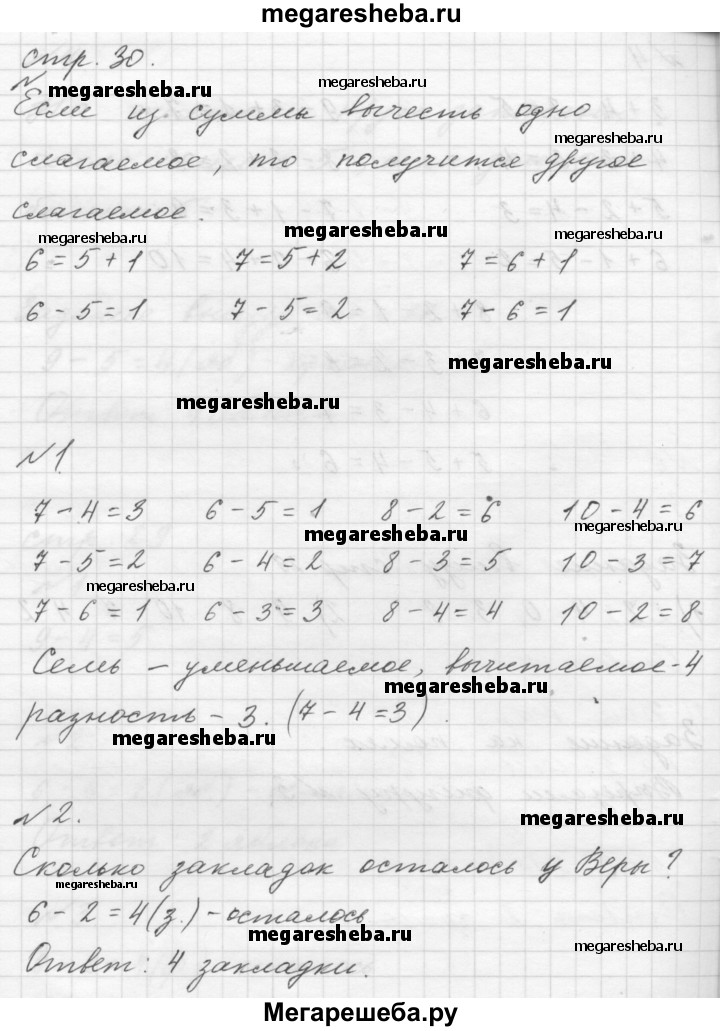 megaresheba.ru
стр. 30.
megaresheba.ru megaresheba.ru
Если из суммы вычесть одно
megaresheba.ru
слагаемое, то получится другое
слагаемое.
megaresheba.ru megaresheba.ru megaresheba.ru
6 = 5 + 1 7 = 5 + 2 7 = 6 + 1
6 - 5 = 1 7 - 5 = 2 7 - 6 = 1
megaresheba.ru
megaresheba.ru
№1
7 - 4 = 3 6 - 5 = 1 8 - 2 = 6 10 - 4 = 6
megaresheba.ru megaresheba.ru
7 - 5 = 2 6 - 4 = 2 8 - 3 = 5 10 - 3 = 7
megaresheba.ru megaresheba.ru
7 - 6 = 1 6 - 3 = 3 8 - 4 = 4 10 - 2 = 8
Семь - уменьшаемое, вычитаемое - 4
megaresheba.ru
разность - 3. (7 - 4 = 3).
megaresheba.ru
№2.
megaresheba.ru
Сколько закладок осталось у Веры?
megaresheba.ru
6 - 2 = 4 (з.) - осталось
megaresheba.ru megaresheba.ru
Ответ: 4 закладки.
Мегарешеба.ру